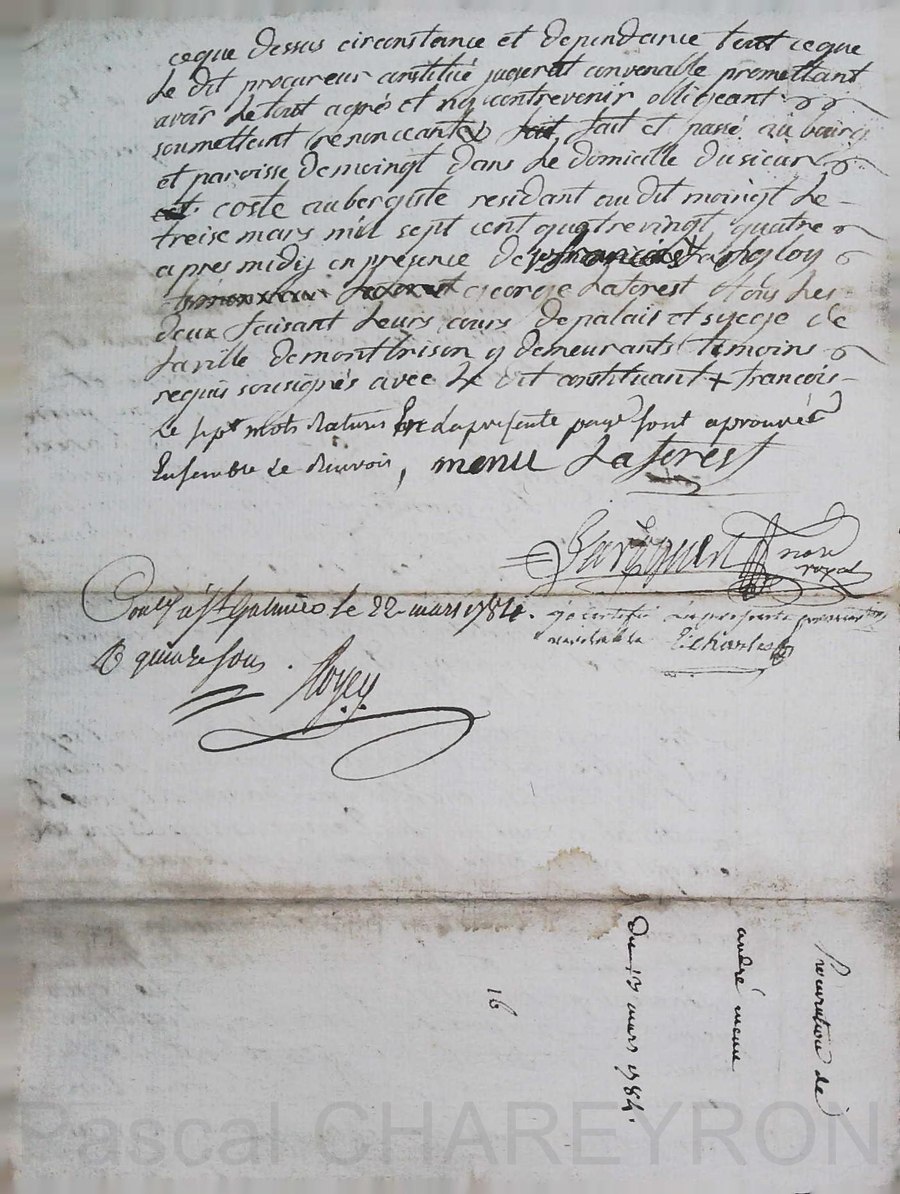 ceque dessus circonstance et dependance tout ceque
le dit procureur constitué jugerat convenable promettant
avoir le tout agrés et ny contrevenir obligeant
soumettant renoncant & fait et passé au bourg
et paroisse demoingt dans le domicille dusieur
coste aubergiste residant audit moingt le
treise mars mil sept cent quatrevingt quatre
apres midy en presence de
george Laforest tous les
deux faisant leurs cours depalais et syege de
la ville demontbrison y demeurants temoins
requis sousignés avec le dit constituant + francois
Le sept mots Ratures En la presente page sont aprouvée
Ensemble Le Renvois, menu Laforest
notre
royal
à St Galmier le 22 mars 1784.
R quinze sous.
j'ai certifié la presente
veritable Charles
Procuration de
andré menu
du 13 mars 1784.
16
Pascal CHAREYRON